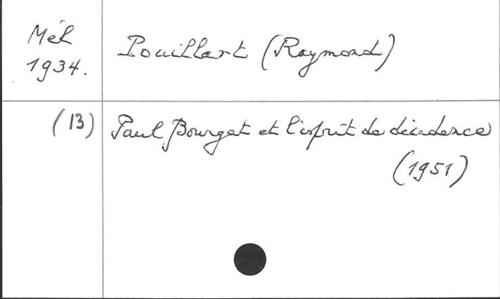 Mél
1934.
Pouillart (Raymond)
(13)
Paul Bourget et l'esprit de décadence
(1951)